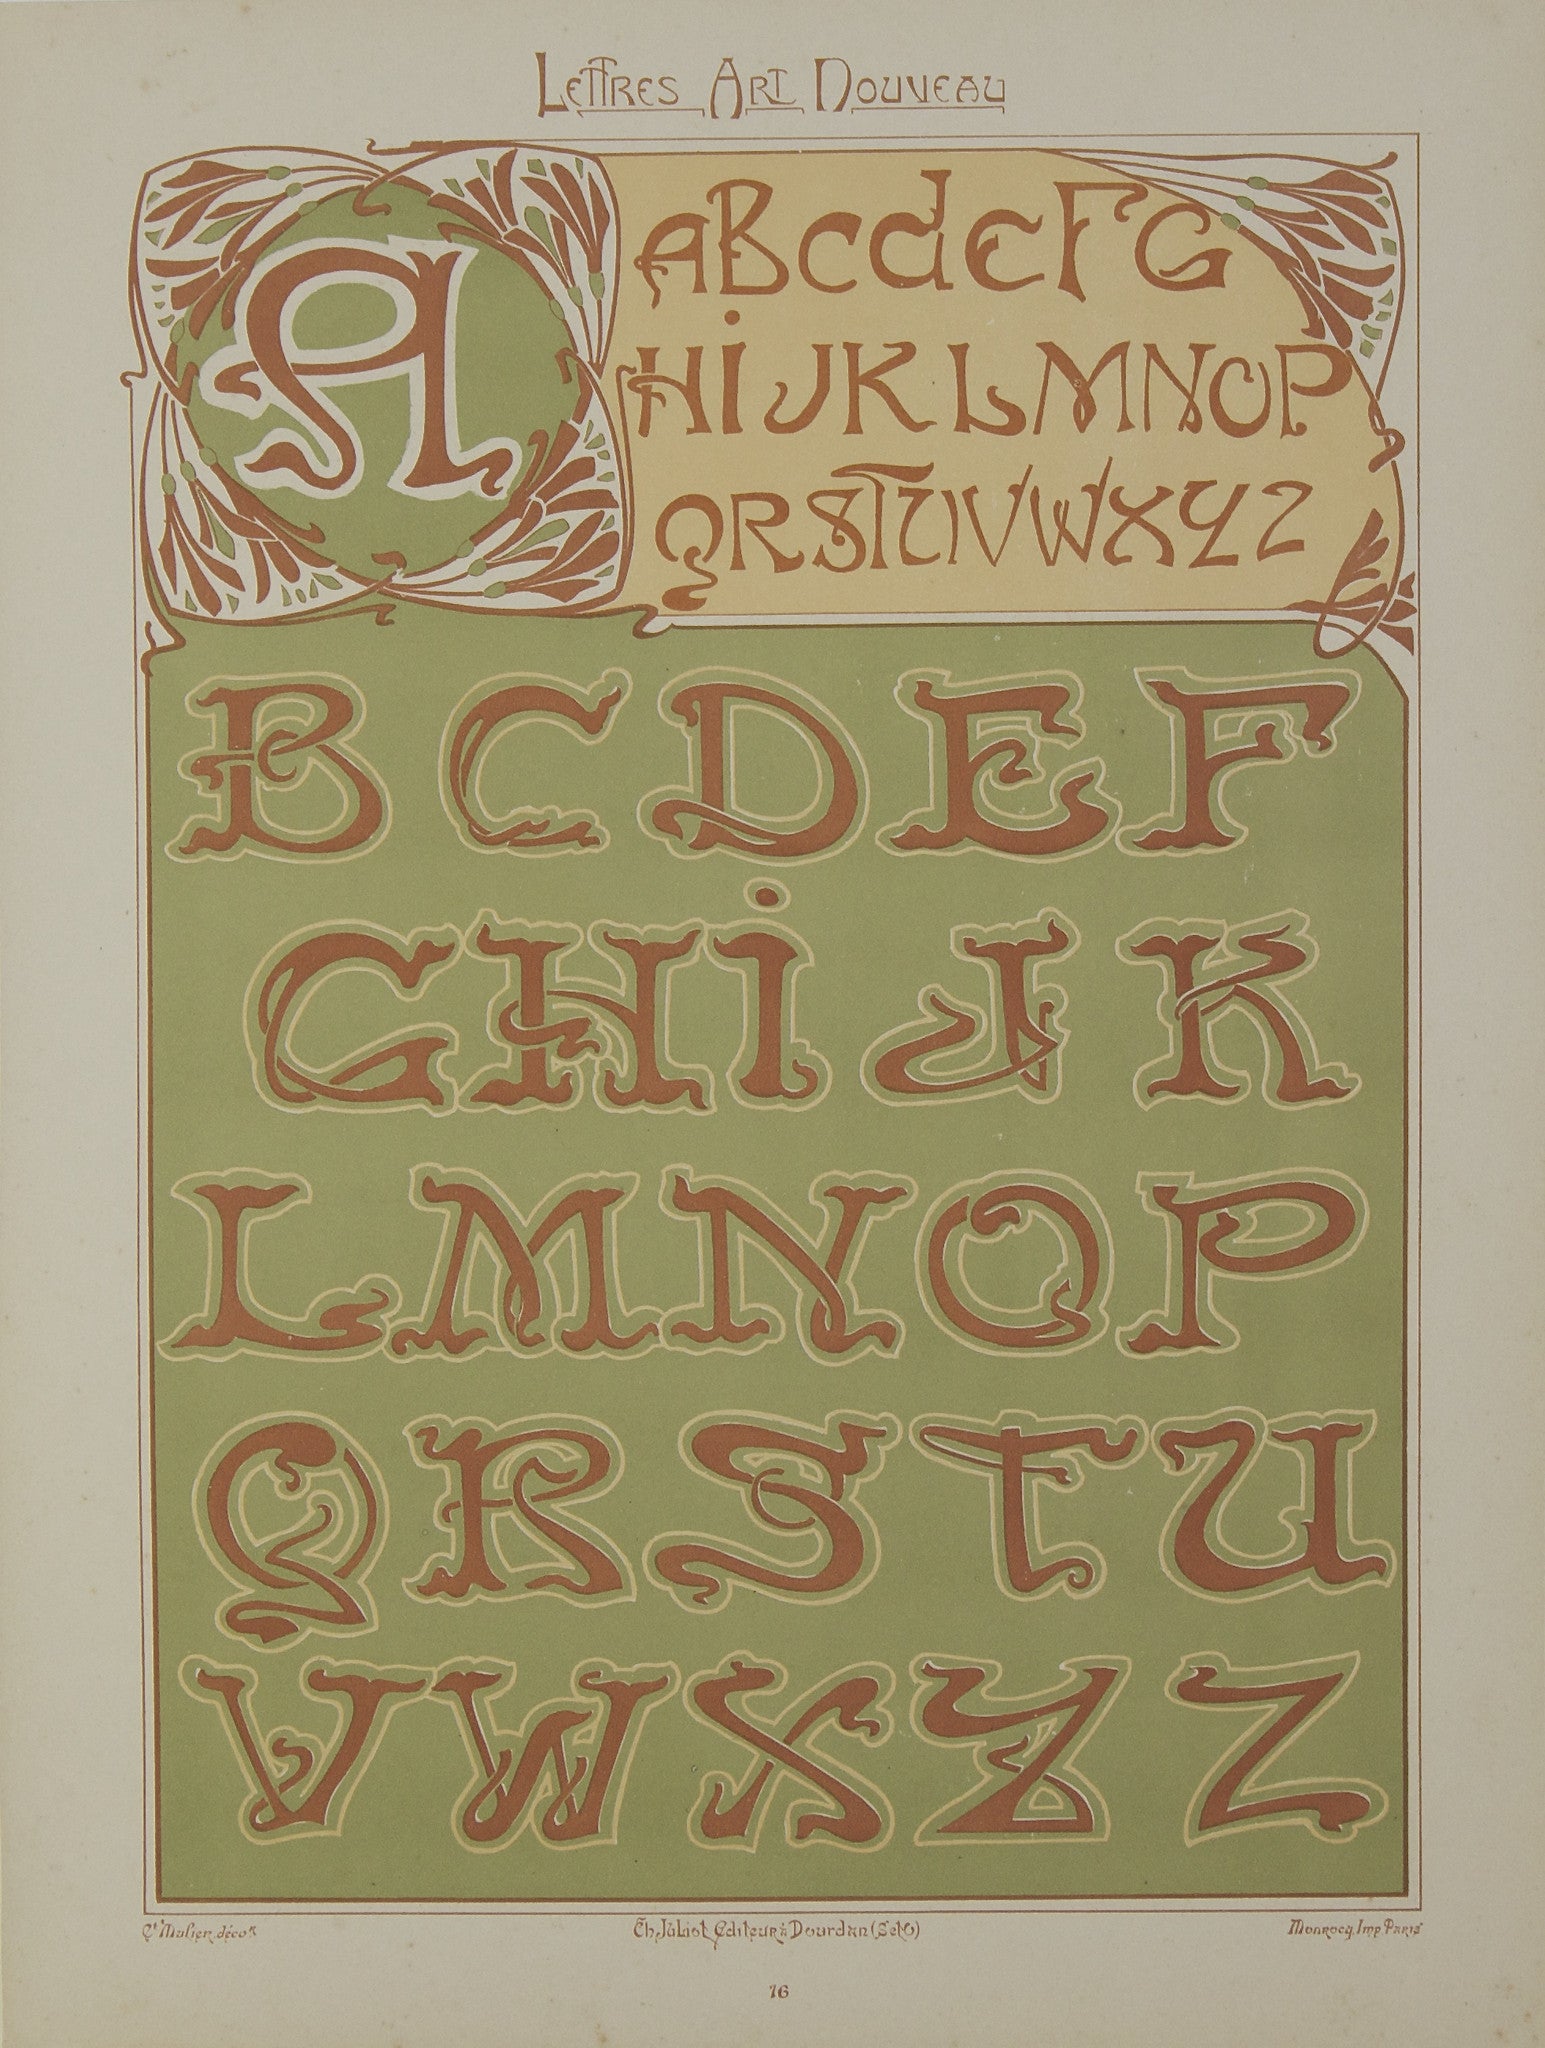 Lettres Art Nouveau
A
ABCdEFG
HiJKLMNOP
QRSTUVWXYZ
BCDEF
GHiJK
LMNOP
QRSTU
VWXYZ
Mulier, décor
Ch. Juliot, Editeur à Dourdan (S et O)
Monrocq, Imp. Paris
16